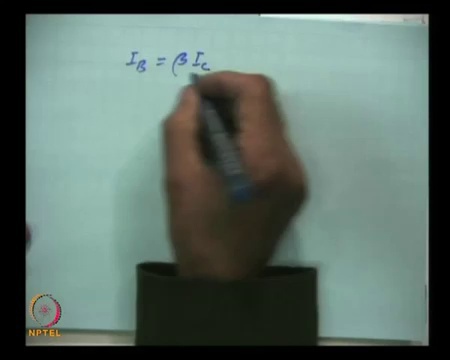 I_B = β I_C
NPTEL